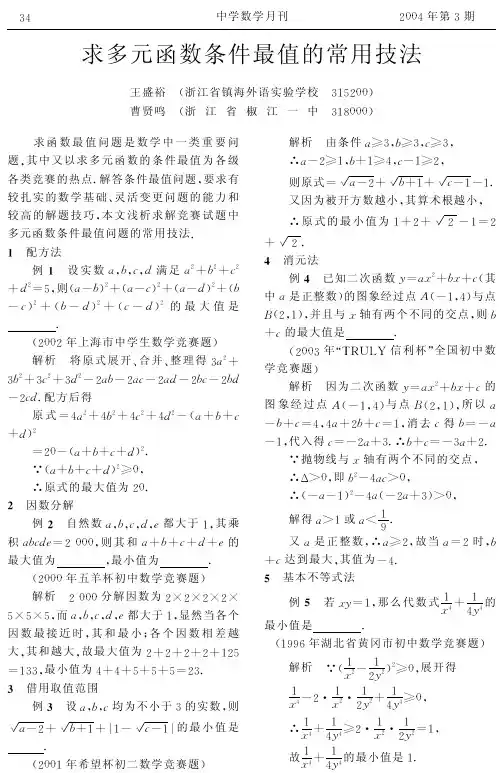 34 中学数学月刊 2004 年第 3 期
求多元函数条件最值的常用技法
王盛裕 (浙江省镇海外语实验学校 315200)
曹贤鸣 (浙江省椒江一中 318000)
求函数最值问题是数学中一类重要问
题,其中又以求多元函数的条件最值为各级
各类竞赛的热点.解答条件最值问题,要求有
较扎实的数学基础、灵活变更问题的能力和
较高的解题技巧,本文浅析求解竞赛试题中
多元函数条件最值问题的常用技法.
1 配方法
例 1 设实数 a,b,c,d 满足 a²+b²+c²
+d²=5,则(a-b)²+(a-c)²+(a-d)²+(b
-c)²+(b-d)²+(c-d)² 的最大值是
______.
(2002 年上海市中学生数学竞赛题)
解析 将原式展开、合并、整理得 3a²+
3b²+3c²+3d²-2ab-2ac-2ad-2bc-2bd
-2cd.配方后得
原式=4a²+4b²+4c²+4d²-(a+b+c
+d)²
=20-(a+b+c+d)².
∵(a+b+c+d)²≥0,
∴原式的最大值为 20.
2 因数分解
例 2 自然数 a,b,c,d,e 都大于 1,其乘
积 abcde=2 000,则其和 a+b+c+d+e 的
最大值为______,最小值为______.
(2000 年五羊杯初中数学竞赛题)
解析 2 000 分解因数为 2×2×2×2×
5×5×5,而 a,b,c,d,e 都大于 1,显然当各个
因数最接近时,其和最小;各个因数相差越
大,其和越大,故最大值为 2+2+2+2+125
=133,最小值为 4+4+5+5+5=23.
3 借用取值范围
例 3 设 a,b,c 均为不小于 3 的实数,则
√(a-2)+√(b+1)+|1-√(c-1)|的最小值是
______.
(2001 年希望杯初二数学竞赛题)
解析 由条件 a≥3,b≥3,c≥3,
∴a-2≥1,b+1≥4,c-1≥2,
则原式=√(a-2)+√(b+1)+√(c-1)-1.
又因为被开方数越小,其算术根越小,
∴原式的最小值为 1+2+√2-1=2
+√2.
4 消元法
例 4 已知二次函数 y=ax²+bx+c(其
中 a 是正整数)的图象经过点 A(-1,4)与点
B(2,1),并且与 x 轴有两个不同的交点,则 b
+c 的最大值是______.
(2003 年“TRULY 信利杯”全国初中数
学竞赛题)
解析 因为二次函数 y=ax²+bx+c 的
图象经过点 A(-1,4)与点 B(2,1),所以 a
-b+c=4,4a+2b+c=1,消去 c 得 b=-a
-1,代入得 c=-2a+3.∴b+c=-3a+2.
∵抛物线与 x 轴有两个不同的交点,
∴Δ>0,即 b²-4ac>0,
∴(-a-1)²-4a(-2a+3)>0,
解得 a>1 或 a<1/9.
又 a 是正整数,∴a≥2,故当 a=2 时,b
+c 达到最大,其值为-4.
5 基本不等式法
例 5 若 xy=1,那么代数式 1/x⁴+1/4y⁴ 的
最小值是______.
(1996 年湖北省黄冈市初中数学竞赛题)
解析 ∵(1/x²-1/2y²)²≥0,展开得
1/x⁴-2·1/x²·1/2y²+1/4y⁴≥0,
∴1/x⁴+1/4y⁴≥2·1/x²·1/2y²=1,
故 1/x⁴+1/4y⁴ 的最小值是 1.